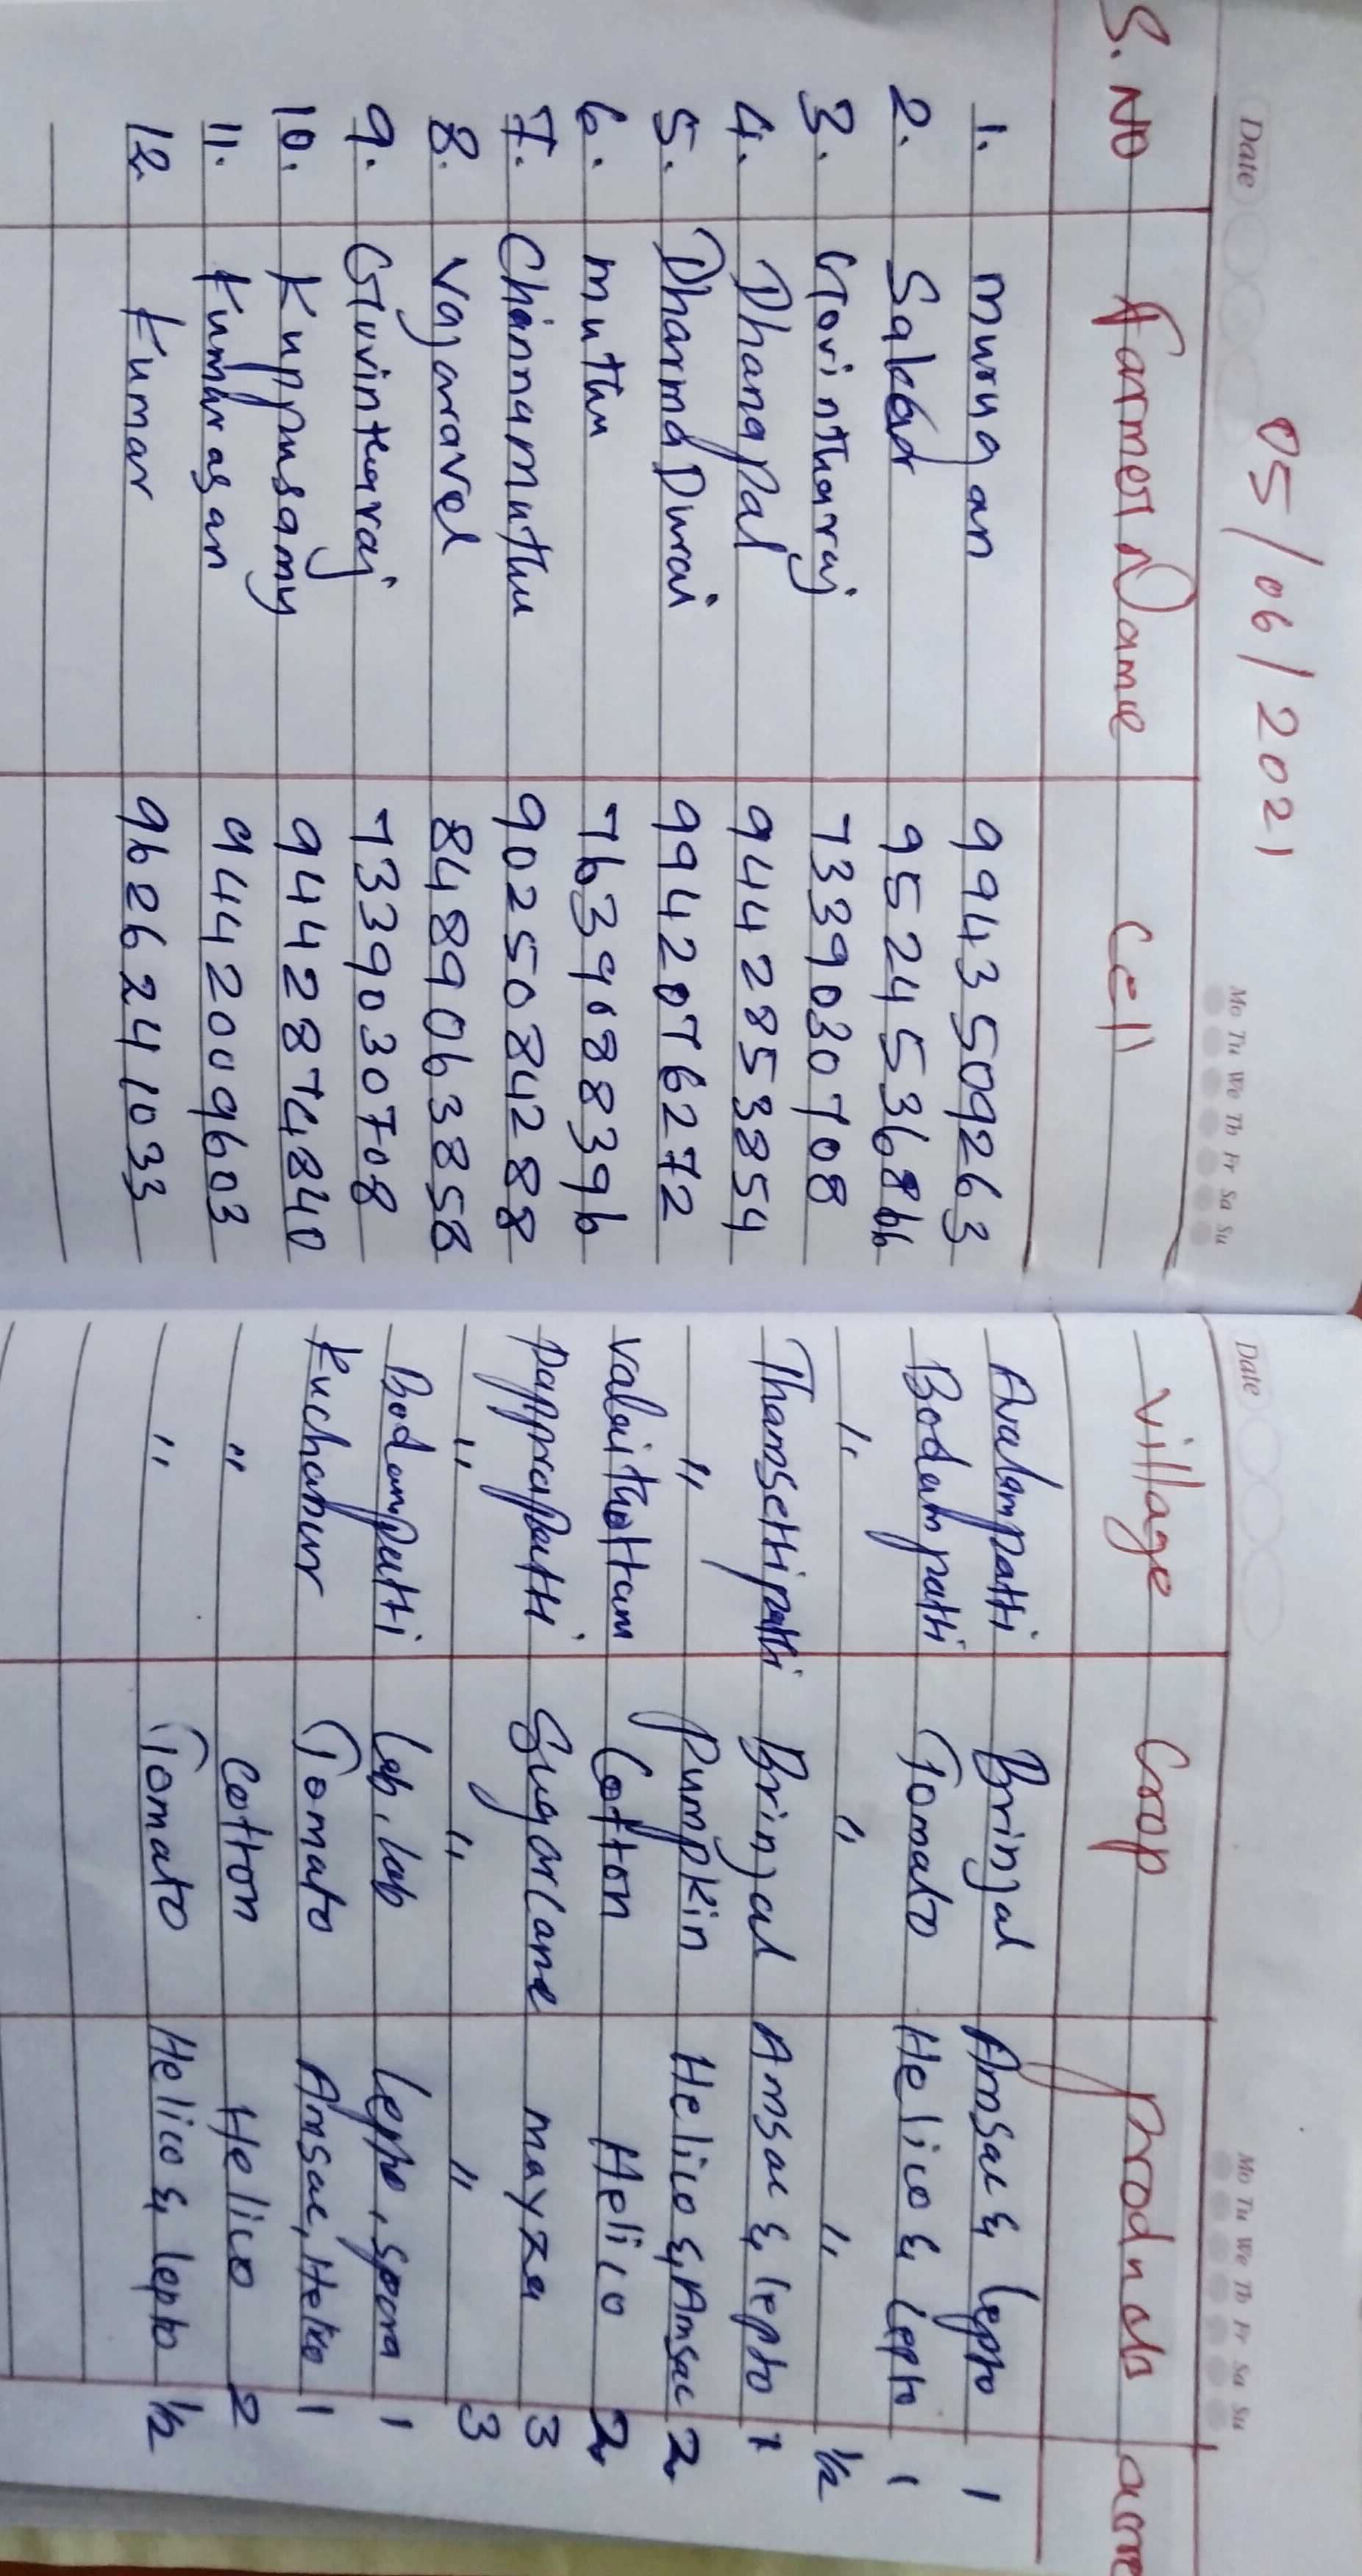 Date 05/06/2021 Mo Tu We Th Fr Sa Su Date Mo Tu We Th Fr Sa Su
S.No Farmer Name Cell village Crop Products acre
1. murugan 9943509263 Avalampatti Brinjal Amsac & lepto 1
2. Sekar 9524536866 Bodampatti Tomato Helico & Lepto 1
3. Govintharaj 7339030708 " " " 1/2
4. Dhanapal 9442853854 Thamsettipatti Brinjal Amsac & lepto 1
5. DharmaDurai 9942076272 " Pumpkin Helico & Amsac 2
6. muthu 7639088396 valaithottam Cotton Helico 2
7. Chinnamuthu 9025084288 papprapatti Sugarcane mayza 3
8. vajaravel 8489063858 " " " 3
9. Govintharaj 7339030708 Bodampatti lab, lab lepto, spora 1
10. Kuppusamy 9442874840 Kuchanur Tomato Amsac, Helico 1
11. Kumarasan 9442009603 " Cotton Helico 2
12. Kumar 9626241033 " Tomato Helico & lepto 1/2